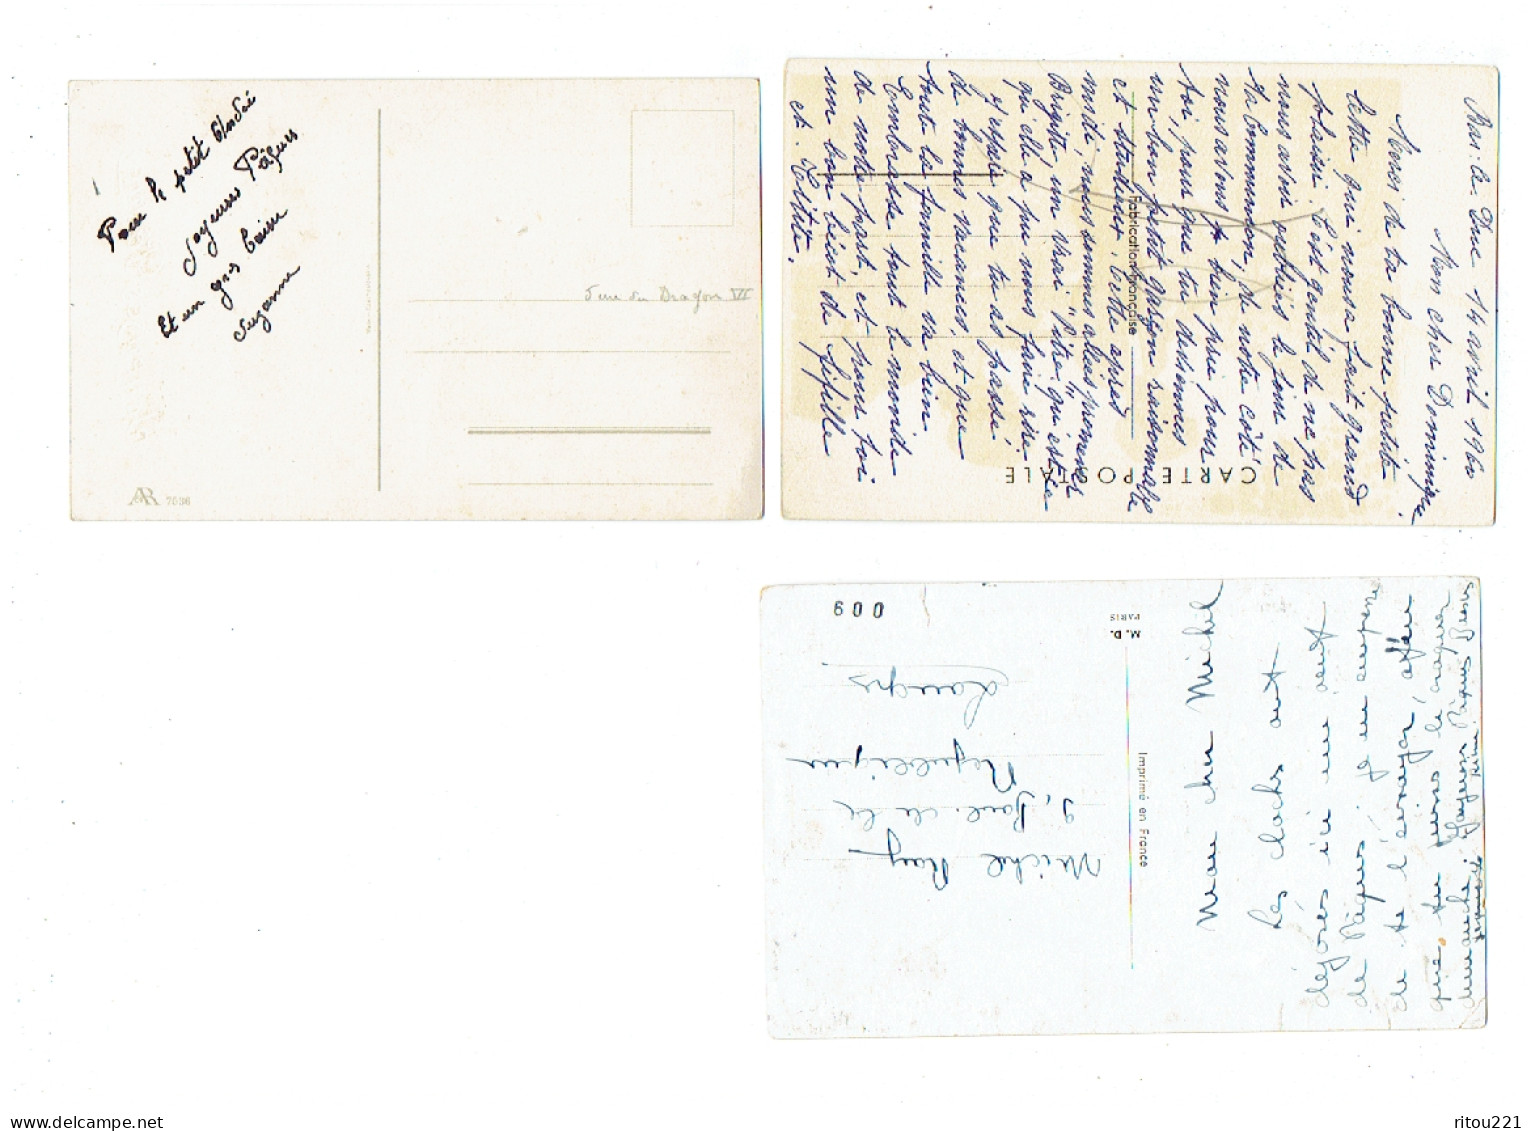 Pour le petit André
Joyeuses Pâques
Et un gros baiser
Suzanne
5 rue du Dragon VI
AR 7536
Bar-le Duc 14 avril 1960
Mon cher Dominique,
Merci de ta bonne petite
lettre qui nous a fait grand
plaisir. C'est gentil de ne pas
nous avoir oubliés le jour de
ta Communion, de notre côté
nous avons bien prié pour
toi, pour que tu deviennes
un bon petit garçon raisonnable
et studieux. Cette après
midi nous sommes allés promener
Brigitte un vrai "Pitre" qu'est ce
qu'elle a pu nous faire rire.
J'espère que tu as passé
de bonnes vacances et que
toute la famille va bien
Embrasse tout le monde
de notre part, et pour toi
un bon bécot de Fifille
et Tétite.
CARTE POSTALE
Fabrication française
Mon cher Michel
Les cloches ont
déposés ici un œuf
de Pâques; je m'empresse
de te l'envoyer, afin
que tu puisses le croquer
dimanche. Joyeuses Pâques Bises
M. D.
PARIS
Imprimé en France
Michel
9, Boul. de la
République
Langres
009
ritou221